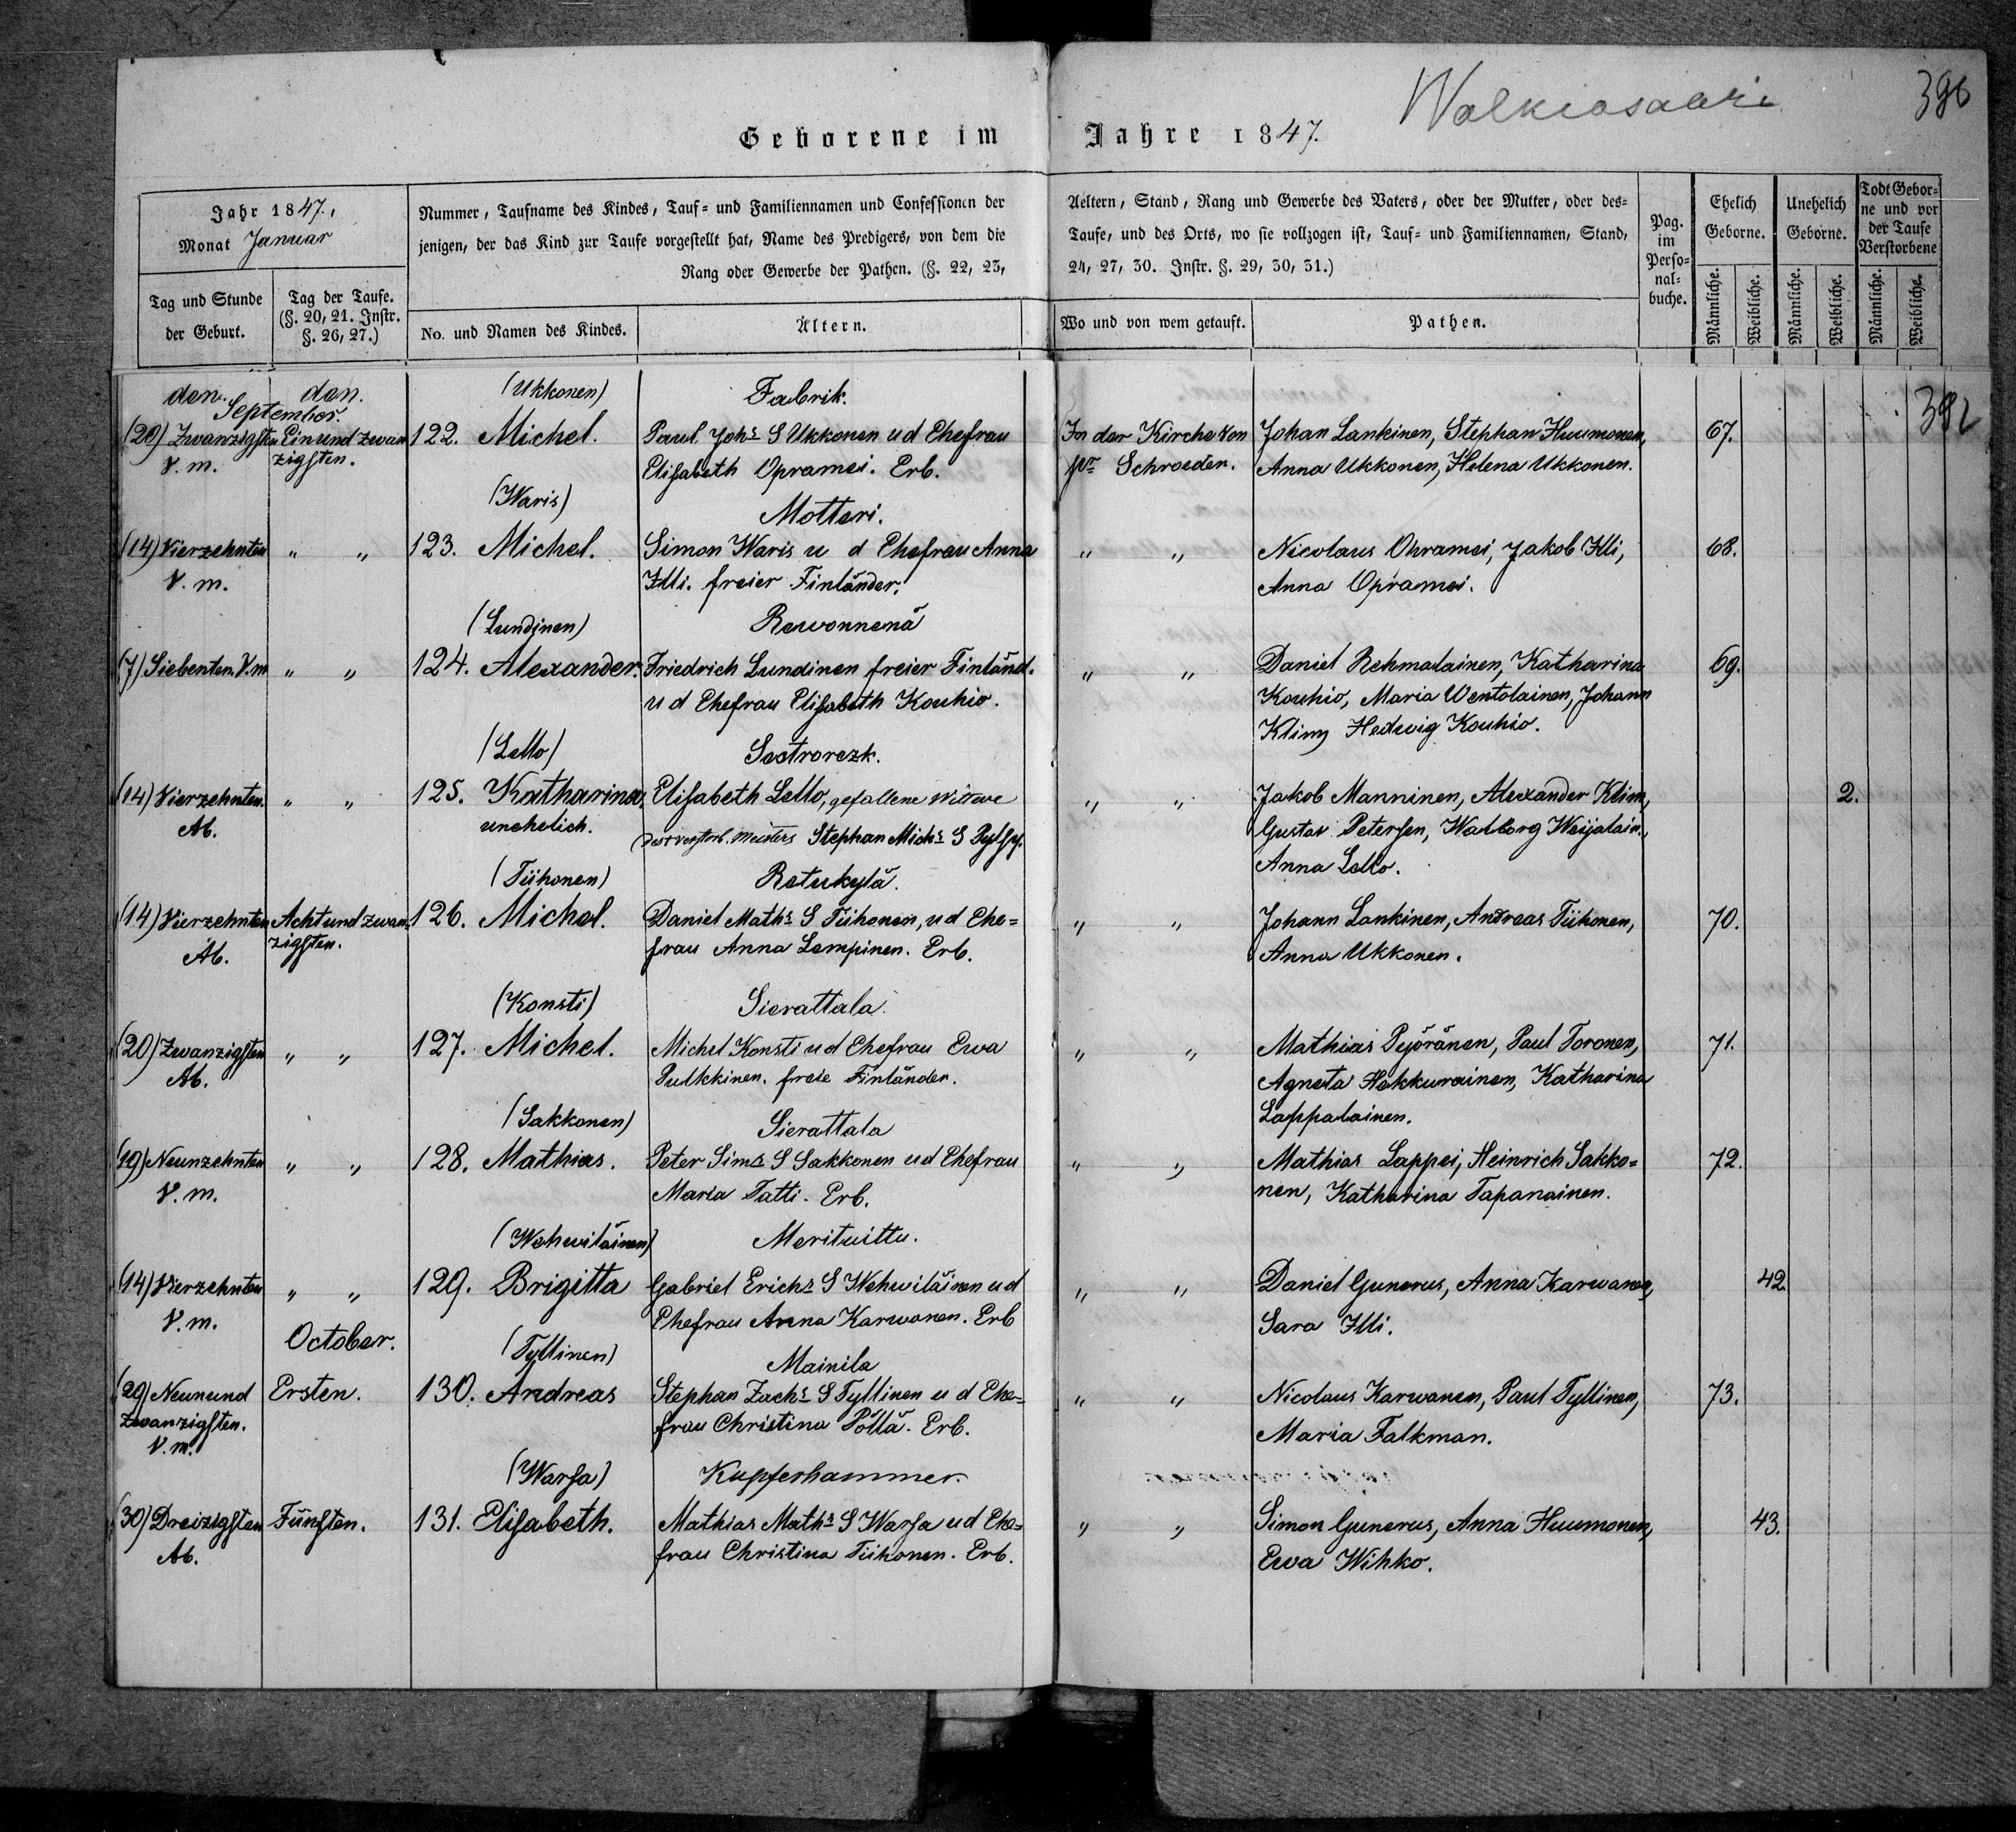 Walkiasaari
396
Geborene im Jahre 1847.
Jahr 1847.,
Monat Januar
Nummer, Taufname des Kindes, Tauf- und Familiennamen und Confessionen der
jenigen, der das Kind zur Taufe vorgestellt hat, Name des Predigers, von dem die
Rang oder Gewerbe der Pathen. (§. 22, 23,
Aeltern, Stand, Rang und Gewerbe des Vaters, oder der Mutter, oder des-
Taufe, und des Orts, wo sie vollzogen ist, Tauf- und Familiennamen, Stand,
24, 27, 30. Instr. §. 29, 30, 31.)
Pag.
im
Perso-
nal-
buche.
Ehelich
Geborne.
Unehelich
Geborne.
Todt Gebor-
ne und vor
der Taufe
Verstorbene
Tag und Stunde
der Geburt.
Tag der Taufe.
(§. 20, 21. Instr.
§. 26, 27.)
No. und Namen des Kindes.
Ältern.
Wo und von wem getauft.
Pathen.
Männliche.
Weibliche.
Männliche.
Weibliche.
Männliche.
Weibliche.
den. den. (Ukkonen) Fabrik.
September.
(20) Zwanzigsten Einundzwan 122. Michel. Paul Johs S Ukkonen u d Ehefrau In der Kirche von Johan Lankinen, Stephan Huumonen, 67.
V. m. zigsten. Elisabeth Opramei. Erb. pr Schroeder. Anna Ukkonen, Helena Ukkonen.
(Waris) Motteri.
(14) Vierzehnten " " 123. Michel. Simon Waris u d Ehefrau Anna " " Nicolaus Ohramei, Jakob Illi, 68.
V. m. Illi. freier Finländer. Anna Opramei.
(Lundinen) Rewonnenä
(7) Siebenten. V. m " " 124. Alexander. Friedrich Lundinen freier Finländ. " " Daniel Rehmalainen, Katharina 69.
u d Ehefrau Elisabeth Kouhio. Kouhio, Maria Wentolainen, Johann
Klimm Hedwig Kouhio.
(Lello) Sestrorezk.
(14) Vierzehnten. " " 125. Katharina, Elisabeth Lello, gefallene Wittwe " " Jakob Manninen, Alexander Klim, 2.
Ab. unehelich. des verstorb. Meisters Stephan Michs S Pylsy. Gustav Petersen, Walborg Weijalain.,
Anna Lello.
(Tiihonen) Retukylä.
(14) Vierzehnten Achtundzwan 126. Michel. Daniel Maths S Tiihonen, u d Ehe= " " Johann Lankinen, Andreas Tiihonen, 70.
Ab. zigsten. frau Anna Lempinen. Erb. Anna Ukkonen.
(Konsti) Sierattala.
(20) Zwanzigsten " " 127. Michel. Michel Konsti u d Ehefrau Ewa " " Mathias Pyöränen, Paul Toronen, 71.
Ab. Pulkkinen. freie Finländer. Agneta Hakkurainen, Katharina
Lappalainen.
(Sakkonen) Sierattala
(19) Neunzehnten " " 128. Mathias. Peter Sims S Sakkonen u d Ehefrau " " Mathias Lappei, Heinrich Sakko= 72.
V. m. Maria Tatti. Erb. nen, Katharina Tapanainen.
(Wehwiläinen) Merituittu.
(14) Vierzehnten " " 129. Brigitta Gabriel Erichs S Wehwiläinen u d " " Daniel Gunerus, Anna Karwanen, 42.
V. m. Ehefrau Anna Karwanen. Erb Sara Illi.
October. (Tyllinen) Mainila
(29) Neunund Ersten. 130. Andreas Stephan Zachs S Tyllinen u d Ehe- " " Nicolaus Karwanen, Paul Tyllinen, 73.
zwanzigsten. frau Christina Pöllä. Erb. Maria Falkman.
V. m.
(Warsa) Kupferhammer.
(30) Dreizigsten Fünften. 131. Elisabeth. Mathias Maths S Warsa u d Ehe= " " Simon Gunerus, Anna Huumonen, 43.
Ab. frau Christina Tiihonen. Erb. Ewa Wihko.